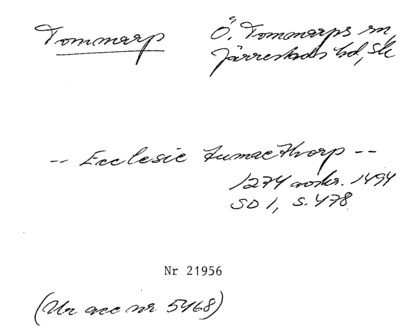 Tommarp
Ö. Tommarps sn,
Järrestads hd, Sk
-- Ecclesie tumaethorp --
1274 avskr. 1494
SD 1, s. 478
Nr 21956
(Ur acc nr 5468)